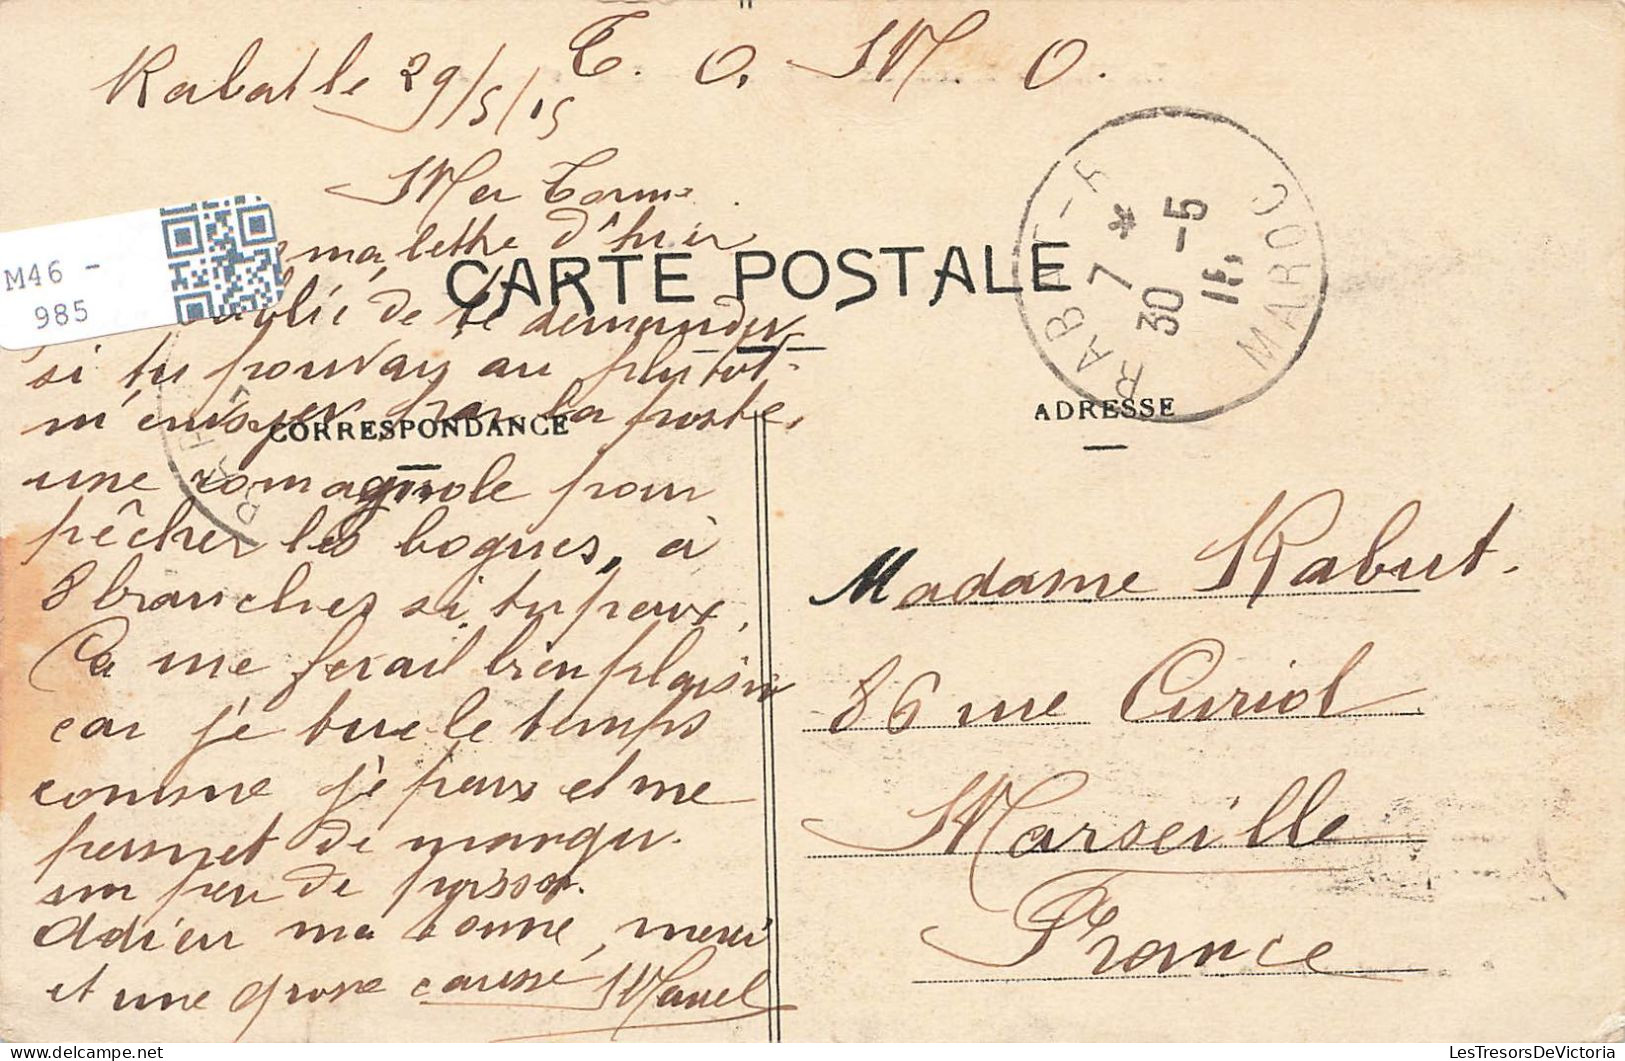 Rabat le 29/5/15
T. O. M. O.
Ma bonne
ma lettre d'hier
oublié de te demander
si tu pouvay au plutot
m'envoyer par la poste,
une romagnole pour
pêcher les bogues, à
8 branches si tu peux,
Ca me ferait bien plaisir
car je tue le temps
comme je peux et me
permet de manger
un peu de poisson.
Adieu ma bonne, merci
et une grosse caresse Manuel
M46 -
985
CARTE POSTALE
CORRESPONDANCE
ADRESSE
RABAT-R.P.
MAROC
7 *
30 -5
15
Madame Rabut.
86 rue Curiol
Marseille
France
LesTresorsDeVictoria